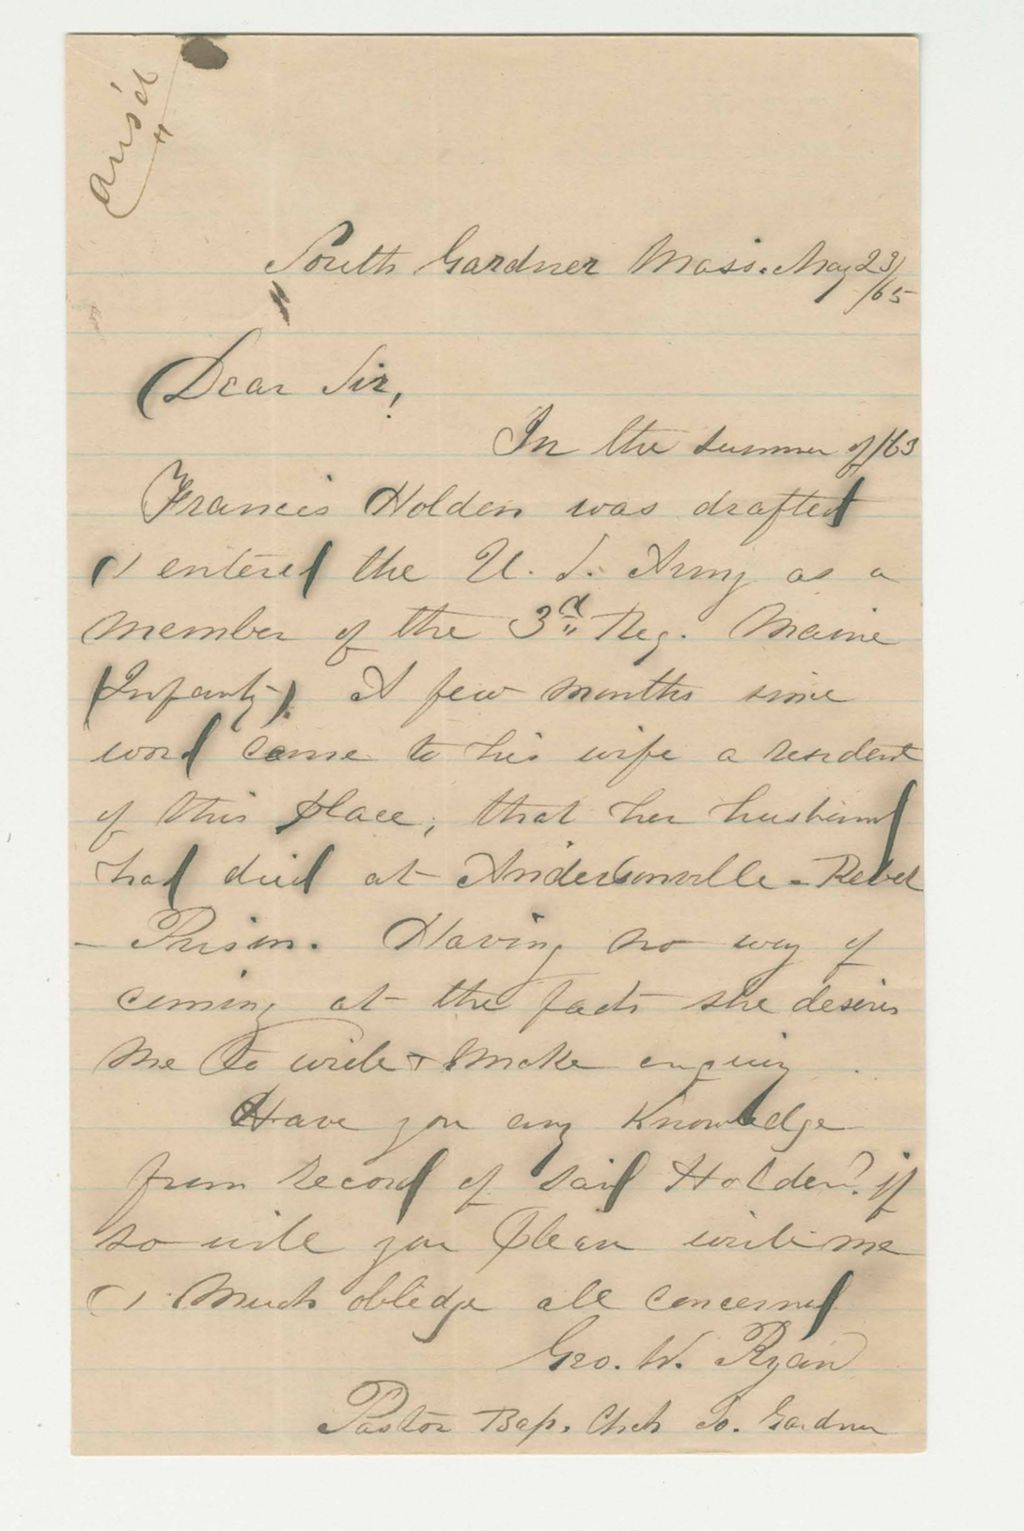 Ans'd
South Gardner Mass. May 23/65
Dear Sir,
In the summer of /63
Francis Holden was drafted
& entered the U. S. Army as a
member of the 3rd Reg. Maine
(Infanty). A few months since
word came to his wife a resident
of this place, that her husband
had died at Andersonville - Rebel
- Prison. Having no way of
coming at the facts she desires
me to write & make enquiry.
Have you any knowledge
from record of said Holden? if
so will you please write me
& much obledge all concerned
Geo. W. Ryan
Pastor Bap. Chch So. Gardner